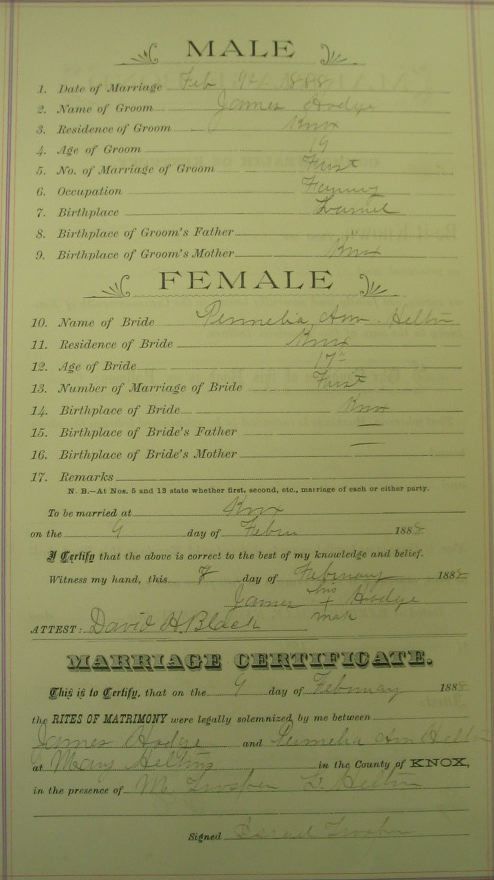 MALE
1. Date of Marriage Feb 9th 1888
2. Name of Groom James Hodge
3. Residence of Groom Knox
4. Age of Groom 19
5. No. of Marriage of Groom First
6. Occupation Farmer
7. Birthplace
8. Birthplace of Groom's Father
9. Birthplace of Groom's Mother Knox
FEMALE
10. Name of Bride Permelia Ann Helton
11. Residence of Bride Knox
12. Age of Bride 17
13. Number of Marriage of Bride First
14. Birthplace of Bride Knox
15. Birthplace of Bride's Father —
16. Birthplace of Bride's Mother —
17. Remarks
N. B.—At Nos. 5 and 13 state whether first, second, etc., marriage of each or either party.
To be married at Knox
on the 9 day of 1888
I Certify that the above is correct to the best of my knowledge and belief.
Witness my hand, this day of February 1888
James his + Hodge
mark
ATTEST: David H. Black
MARRIAGE CERTIFICATE.
This is to Certify, that on the 9 day of February 1888
the RITES OF MATRIMONY were legally solemnized by me between
James Hodge and Ann Helton
at Mary Heltons in the County of KNOX,
in the presence of M. Helton
Signed